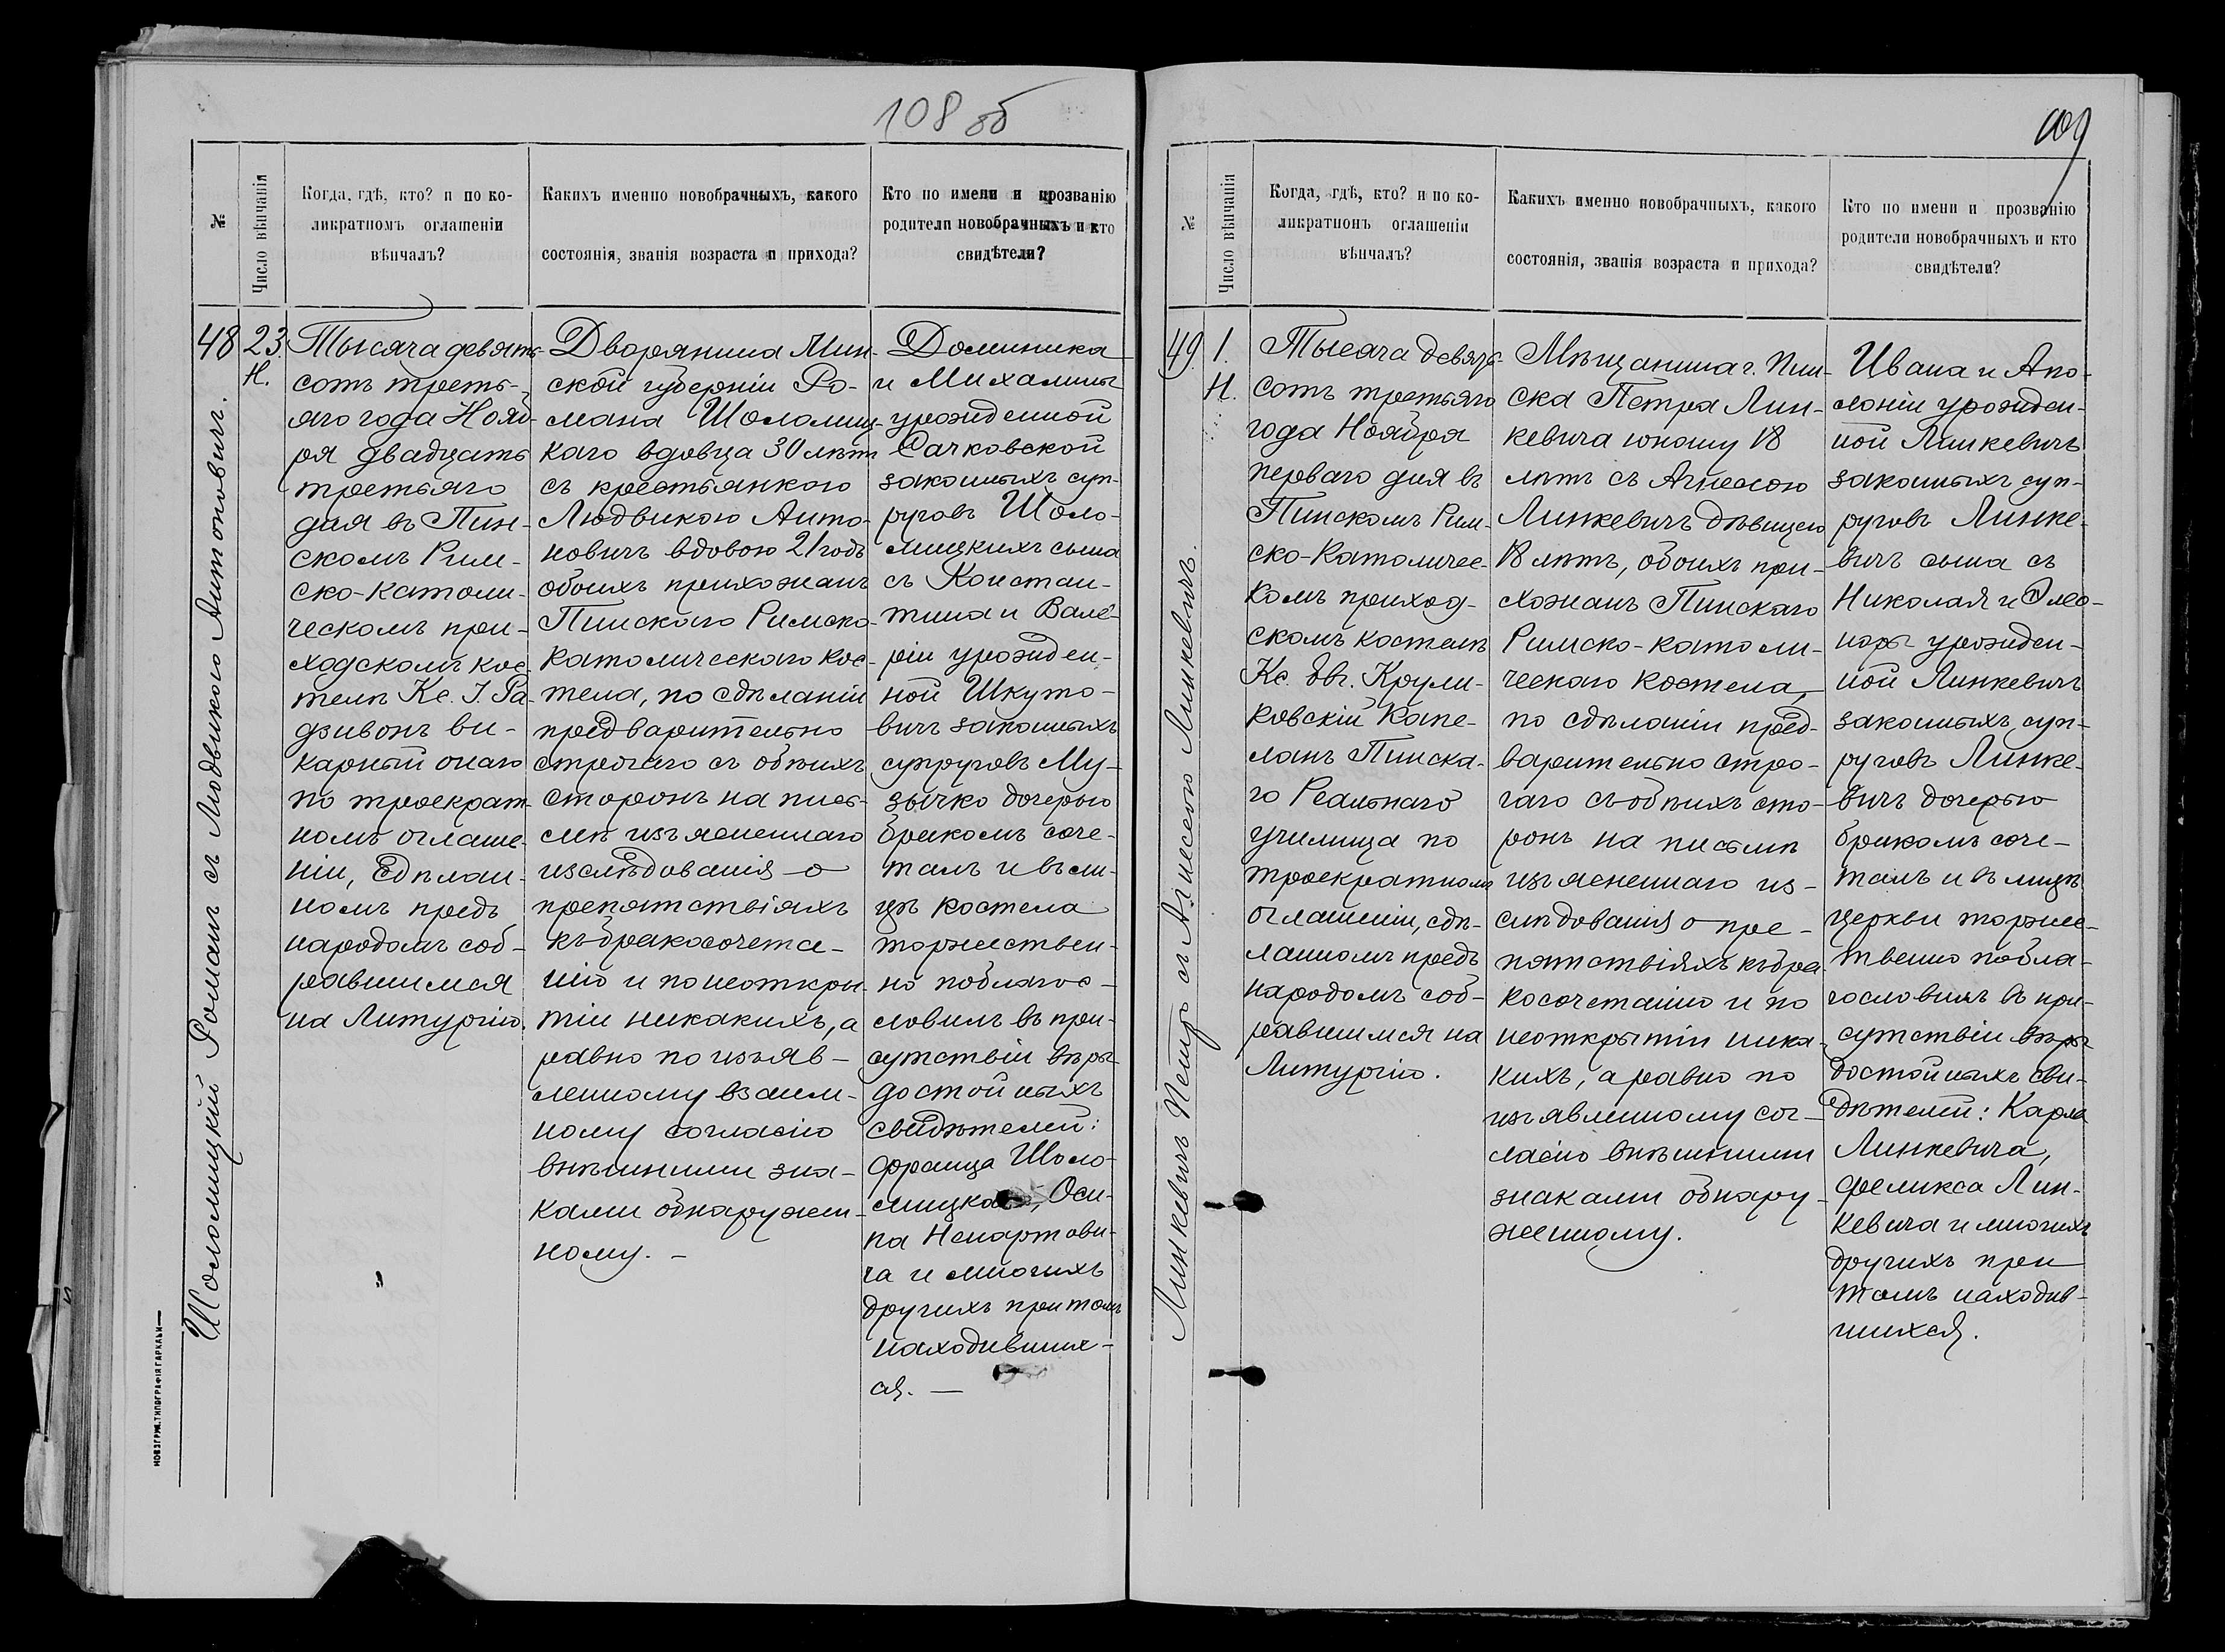 108 об
№
Число вѣнчанія
Когда, гдѣ, кто? и по ко-
ликратномъ оглашеніи
вѣнчалъ?
Какихъ именно новобрачныхъ, какого
состоянія, званія возраста и прихода?
Кто по имени и прозванію
родители новобрачныхъ и кто
свидѣтели?
Шоломицкій Романъ съ Людвикою Антоновичъ.
48
23.
Н.
Тысяча девять-
сотъ треть-
яго года Нояб-
ря двадцать
третьяго
дня въ Пин-
скомъ Рим-
ско-католи-
ческомъ при-
ходскомъ кос-
телѣ Кс. І. Ра-
дзивонъ ви-
карный онаго
по троекрат-
номъ оглаше-
ніи, сдѣлан-
номъ предъ
народомъ соб-
равшимся
на Литургію.
Дворянина Мин-
ской губерніи Ро-
мана Шоломиц-
каго вдовца 30 лѣтъ
съ крестьянкою
Людвикою Анто-
новичъ вдовою 21 годъ
обоихъ прихожанъ
Пинского Римско-
католического кос-
тела, по сдѣланіи
предварительно
строгаго съ обѣихъ
сторонъ на пись-
мѣ изъясненнаго
изслѣдованія о
препятствіяхъ
къ бракосочета-
нію и по неоткры-
тіи никакихъ, а
равно по изъяв-
ленному взаим-
ному согласію
внѣшними зна-
ками обнаружен-
ному. —
Доминика
и Михалины
урожденной
Сачковской
законныхъ суп-
руговъ Шоло-
мицкихъ сына
съ Констан-
тина и Вале-
ріи урожден-
ной Шкуто-
вичъ законныхъ
супруговъ Му-
зычко дочерью
бракомъ соче-
талъ и въ ли-
цѣ костела
торжествен-
но поблагос-
ловилъ въ при-
сутствіи вѣры
достойныхъ
свидѣтелей:
Франца Шоло-
мицкаго, Оси-
па Ненартови-
ча и многихъ
другихъ притомъ
находивших-
ся. —
НОВОГРУД. ТИПОГРАФІЯ ГАРКАВИ
109
№
Число вѣнчанія
Когда, гдѣ, кто? и по ко-
ликратномъ оглашеніи
вѣнчалъ?
Какихъ именно новобрачныхъ, какого
состоянія, званія возраста и прихода?
Кто по имени и прозванію
родители новобрачныхъ и кто
свидѣтели?
Линкевичъ Петръ съ Агнесою Линкевичъ.
49.
1.
Н.
Тысяча девять-
сотъ третьяго
года Ноября
перваго дня въ
Пинскомъ Рим-
ско-Католичес-
комъ приход-
скомъ костелѣ
Кс. Крули-
ковскій Капе-
ланъ Пинска-
го Реальнаго
училища по
троекратномъ
оглашеніи, сдѣ-
ланномъ предъ
народомъ соб-
равшимся на
Литургію.
Мѣщанина г. Пин-
ска Петра Лин-
кевича юношу 18
лѣтъ съ Агнесою
Линкевичъ дѣвицею
18 лѣтъ, обоихъ при-
хожанъ Пинскаго
Римско-католи-
ческаго костела,
по сдѣланіи пред-
варительно стро-
гаго съ обѣихъ сто-
ронъ на письмѣ
изъясненнаго из-
слѣдованія о пре-
пятствіяхъ къ бра-
косочетанію и по
неоткрытіи ника-
кихъ, а равно по
изъявленному сог-
ласію внѣшними
знаками обнару-
женному.
Ивана и Апо-
лоніи урожден-
ной Линкевичъ
законныхъ суп-
руговъ Линке-
вичъ сына съ
Николая и Элео-
норы урожден-
ной Линкевичъ
законныхъ суп-
руговъ Линке-
вичъ дочерью
бракомъ соче-
талъ и въ лицѣ
церкви торжес-
твенно побла-
гословилъ въ при-
сутствіи вѣры
достойныхъ сви-
дѣтелей: Карла
Линкевича,
Феликса Лин-
кевича и многихъ
другихъ при
томъ находив-
шихся.